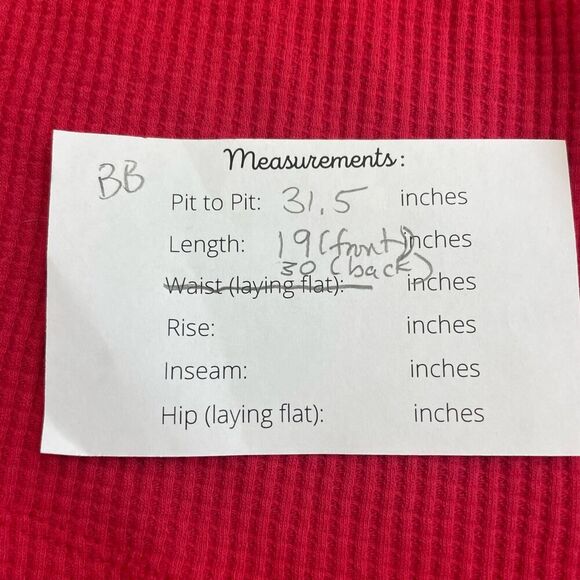 BB
Measurements:
Pit to Pit: 31.5 inches
Length: 19 (front) inches
30 (back)
Waist (laying flat): inches
Rise: inches
Inseam: inches
Hip (laying flat): inches